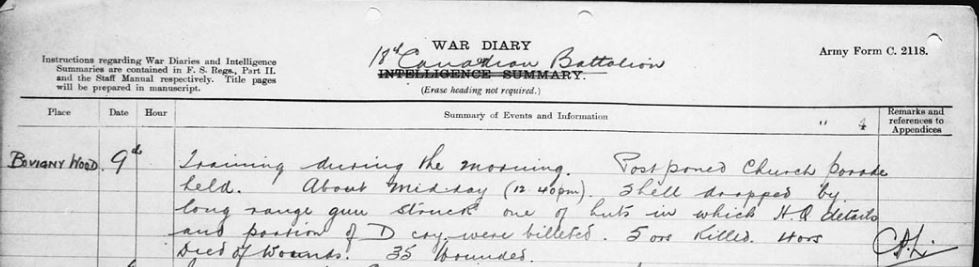 WAR DIARY
Army Form C. 2118.
Instructions regarding War Diaries and Intelligence
Summaries are contained in F. S. Regs., Part II.
and the Staff Manual respectively. Title pages
will be prepared in manuscript.
18th Canadian Battalion
INTELLIGENCE SUMMARY.
(Erase heading not required.)
Place Date Hour Summary of Events and Information Remarks and references to Appendices
BOVIGNY WOOD. 9th Training during the morning. Postponed Church parade
held. About mid-day (12.40pm). Shell dropped by
long range gun struck one of huts in which H.Q details
and portion of D coy were billeted. 5 ors Killed. 4 ors
Died of Wounds. 35 Wounded.